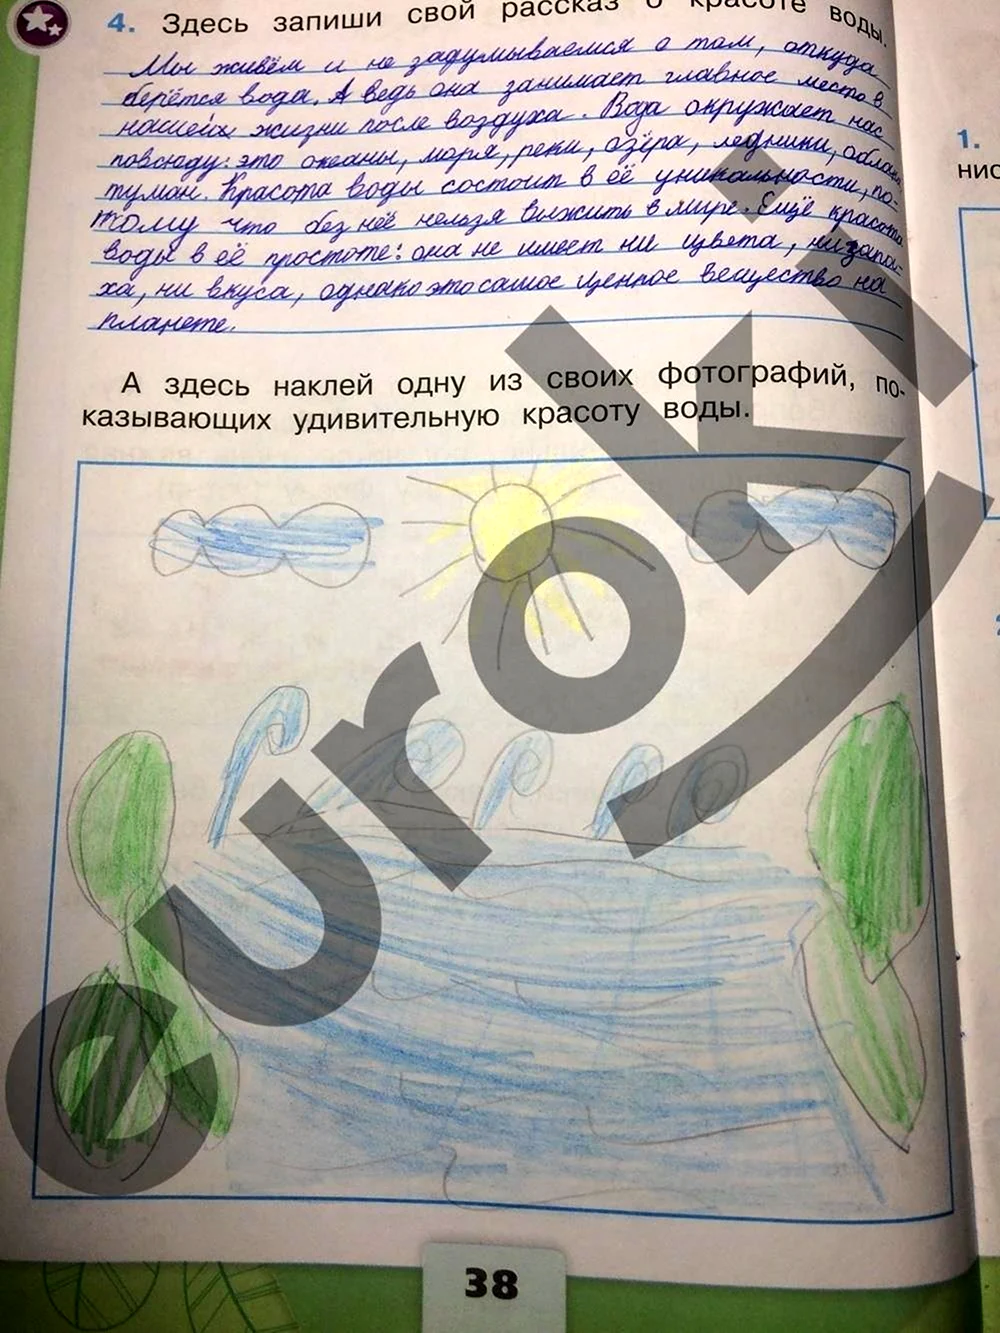 4. Здесь запиши свой рассказ о красоте воды.
Мы живём и не задумываемся о том, откуда
берётся вода. А ведь она занимает главное место в
нашей жизни после воздуха. Вода окружает нас
повсюду: это океаны, моря, реки, озёра, ледники, облака
туман. Красота воды состоит в её уникальности, по-
тому что без неё нельзя выжить в мире. Ещё красота
воды в её простоте: она не имеет ни цвета, ни запа-
ха, ни вкуса, однако это самое ценное вещество на
планете.
А здесь наклей одну из своих фотографий, по-
казывающих удивительную красоту воды.
euroki
38
1.
нис